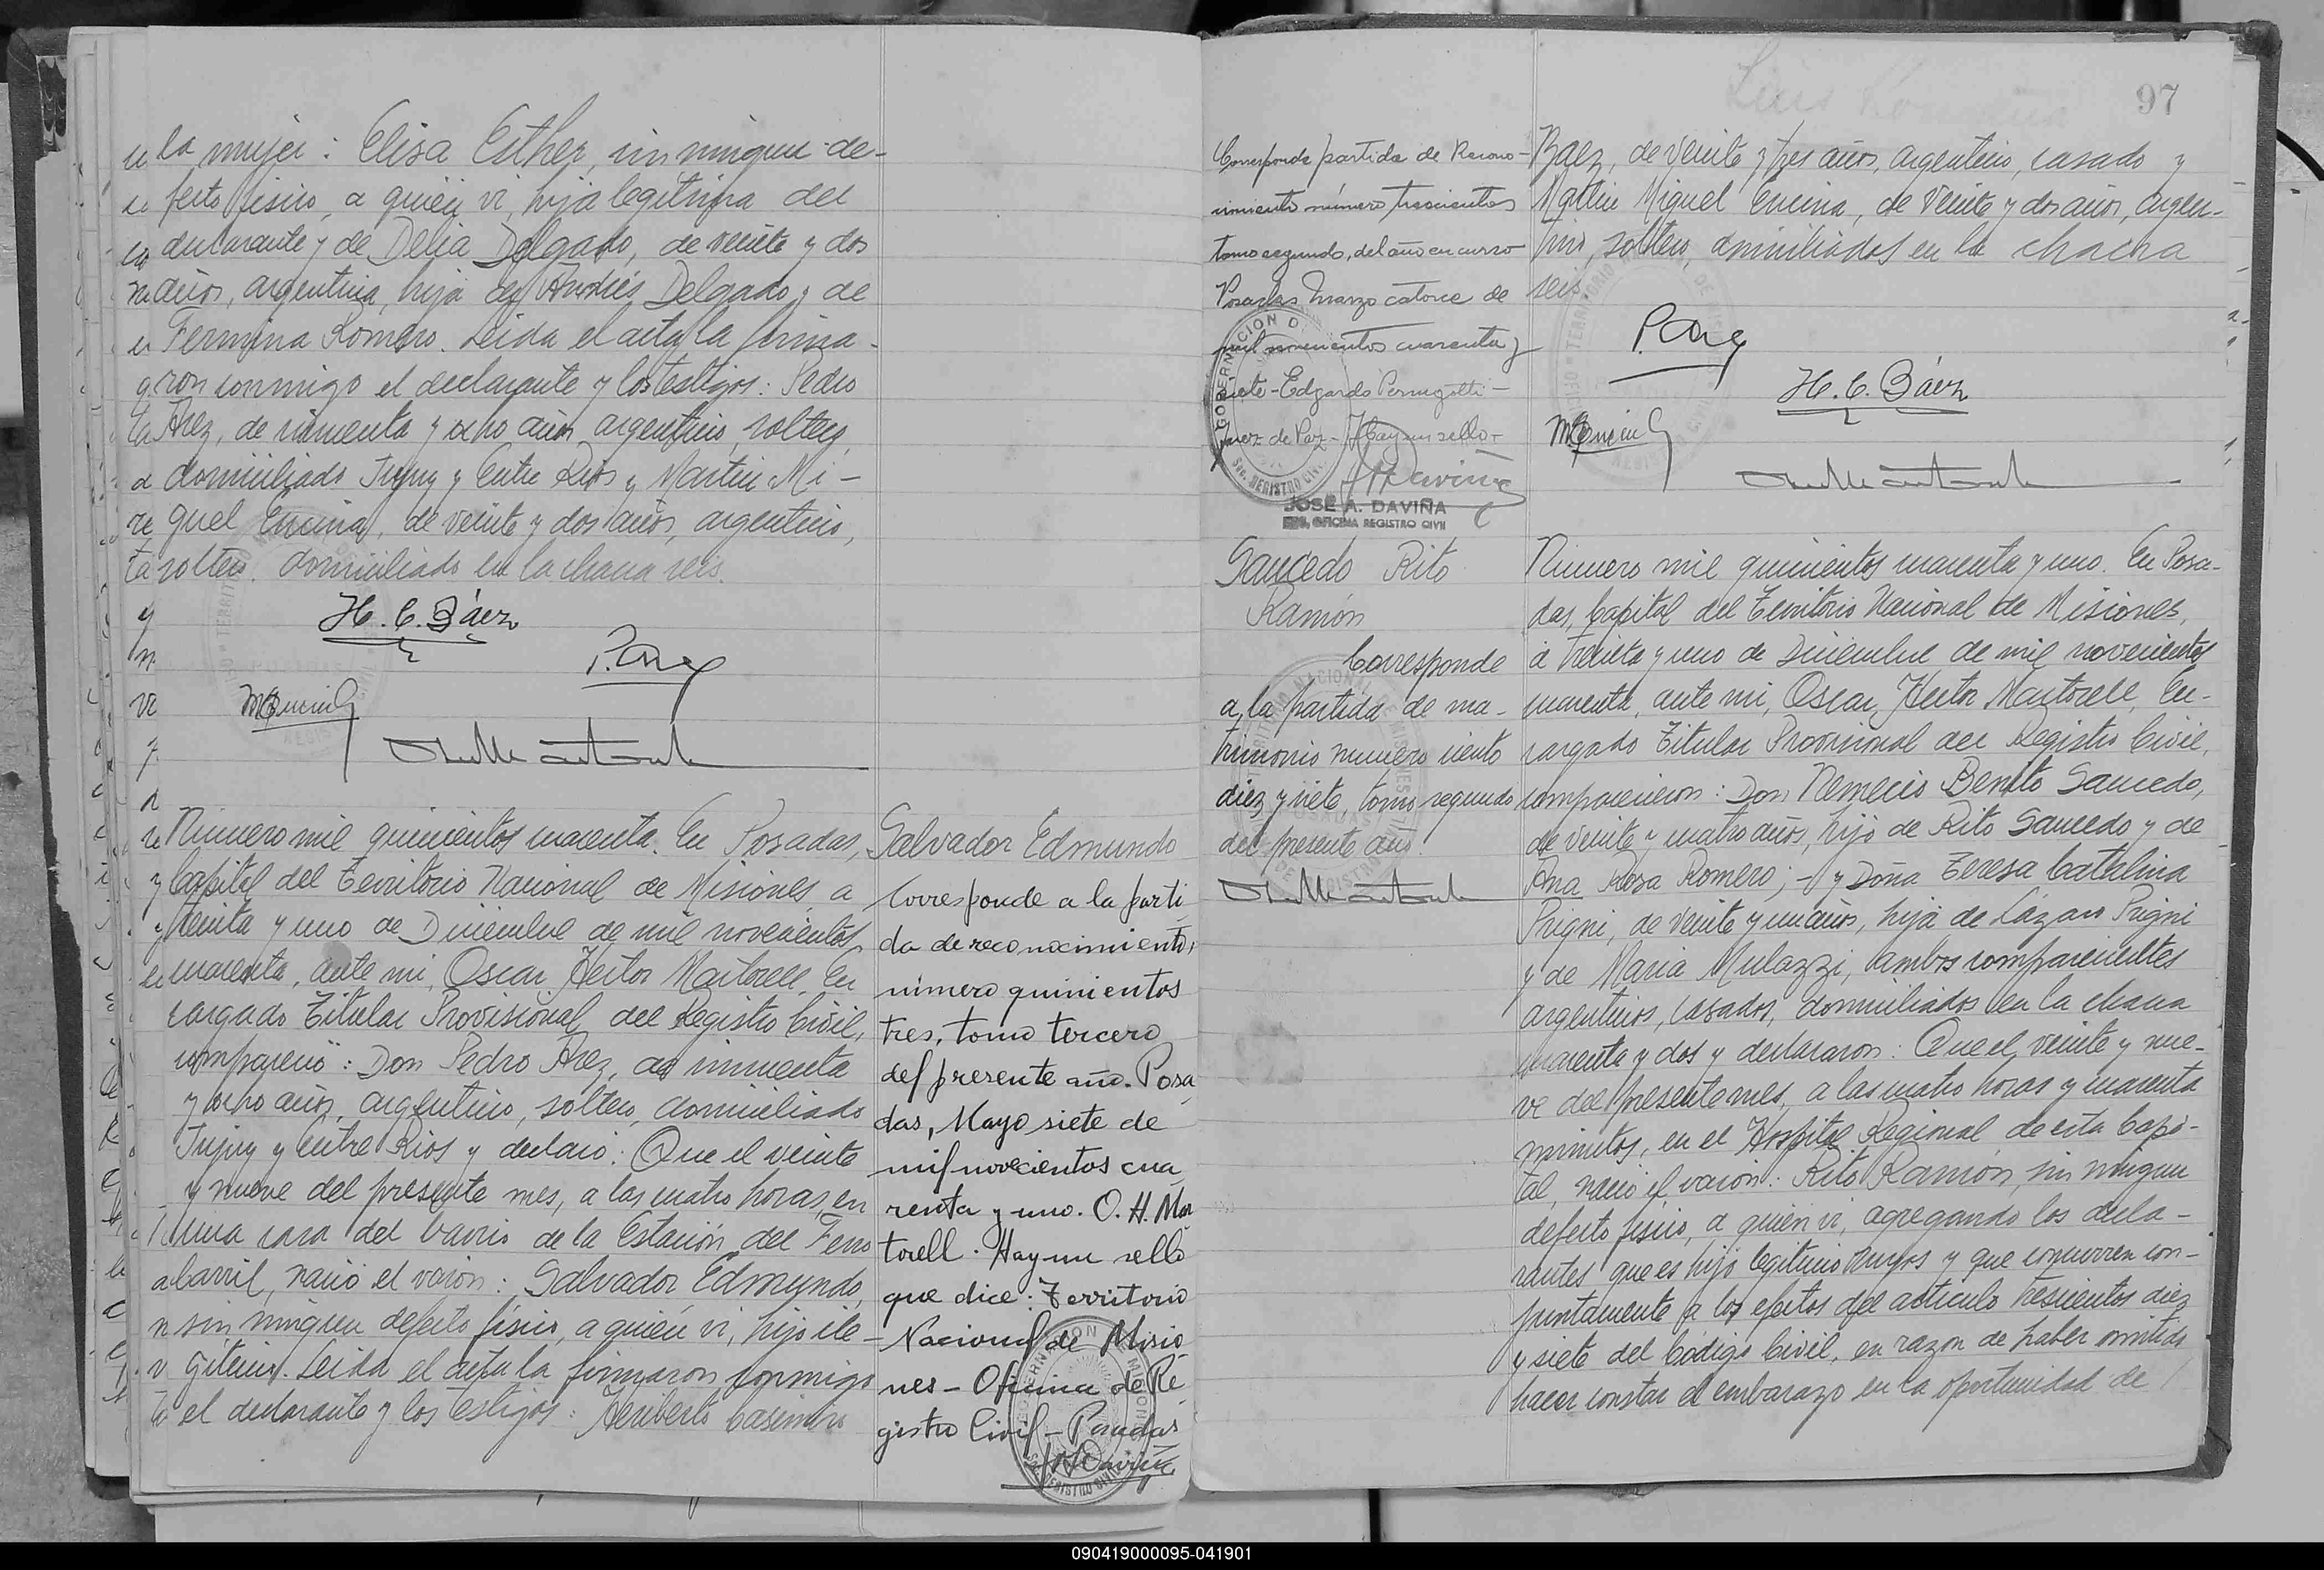 la mujer: Elisa Esther, sin ningun de-
fecto físico, a quién vi, hija legítima del
declarante y de Delia Delgado, de veinte y dos
años, argentina, hija de Andrés Delgado y de
Fermina Romero. Leida el acta la firma-
ron conmigo el declarante y los testigos: Pedro
de cincuenta y ocho años, argentino, soltero,
domiciliado Jujuy y Entre Rios y Martin Mi-
guel Encina, de veinte y dos años, argentino,
soltero, domiciliado en la chacra seis.
H. C. Báez
Numero mil quinientos cuarenta. En Posadas,
Capital del Territorio Nacional de Misiones, a
treinta y uno de Diciembre de mil novecientos
cuarenta, ante mi, Oscar Hector Martorell, En
cargado Titular Provisional del Registro Civil,
compareció: Don Pedro de cincuenta
y ocho años, argentino, soltero, domiciliado
Jujuy y Entre Rios y declaró: Que el veinte
y nueve del presente mes, a las cuatro horas, en
una casa del barrio de la Estación del Ferro
carril, nació el varón: Salvador Edmundo,
sin ningun defecto físico, a quién vi, hijo ile-
gítimo. Leida el acta la firmaron conmigo
el declarante y los testigos: Heriberto Casimiro
Salvador Edmundo
Corresponde a la parti
da de reconocimiento,
número quinientos
tres, tomo tercero
del presente año. Posa
das, Mayo siete de
mil novecientos cua
renta y uno. O. H. Mar
torell. Hay un sello
que dice: Territorio
Nacional de Misio
nes - Oficina de Re
gistro Civil - Posadas
97
Corresponde partida de Recono-
cimiento número trescientos
tomo segundo, del año en curso
Posadas Marzo catorce de
mil novecientos cuarenta y
siete - Edgardo
Juez de Paz - Hay un sello -
JOSE A. DAVIÑA
OFICINA REGISTRO CIVIL
Baez, de veinte y tres años, argentino, casado y
Martin Miguel Encina, de veinte y dos años, argen-
tino, soltero, domiciliados en la chacra
seis.
H. C. Báez
Saucedo Rito
Ramón
Corresponde
a la partida de ma-
trimonio numero ciento
diez y siete, tomo segundo
del presente año.
Numero mil quinientos cuarenta y uno. En Posa-
das, Capital del Territorio Nacional de Misiones,
a treinta y uno de Diciembre de mil novecientos
cuarenta, ante mi, Oscar Hector Martorell, En-
cargado Titular Provisional del Registro Civil,
comparecieron: Don Nemecio Benito Saucedo,
de veinte y cuatro años, hijo de Rito Saucedo y de
Ana Rosa Romero; - y Doña Teresa Catalina
Prigni, de veinte y un años, hija de Lázaro Prigni
y de Maria Mulazzi, ambos comparecientes
argentinos, casados, domiciliados en la chacra
cuarenta y dos y declararon: Que el veinte y nue-
ve del presente mes, a las cuatro horas y cuarenta
minutos, en el Hospital Regional de esta Capi-
tal, nació el varón: Rito Ramón, sin ningun
defecto físico, a quién vi, agregando los decla-
rantes que es hijo legitimo suyos y que concurren con-
juntamente a los efectos del articulo trescientos diez
y siete del Código Civil, en razon de haber omitido
hacer constar el embarazo en la oportunidad de
090419000095-041901